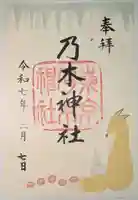 奉拝
乃木神社
令和七年二月七日